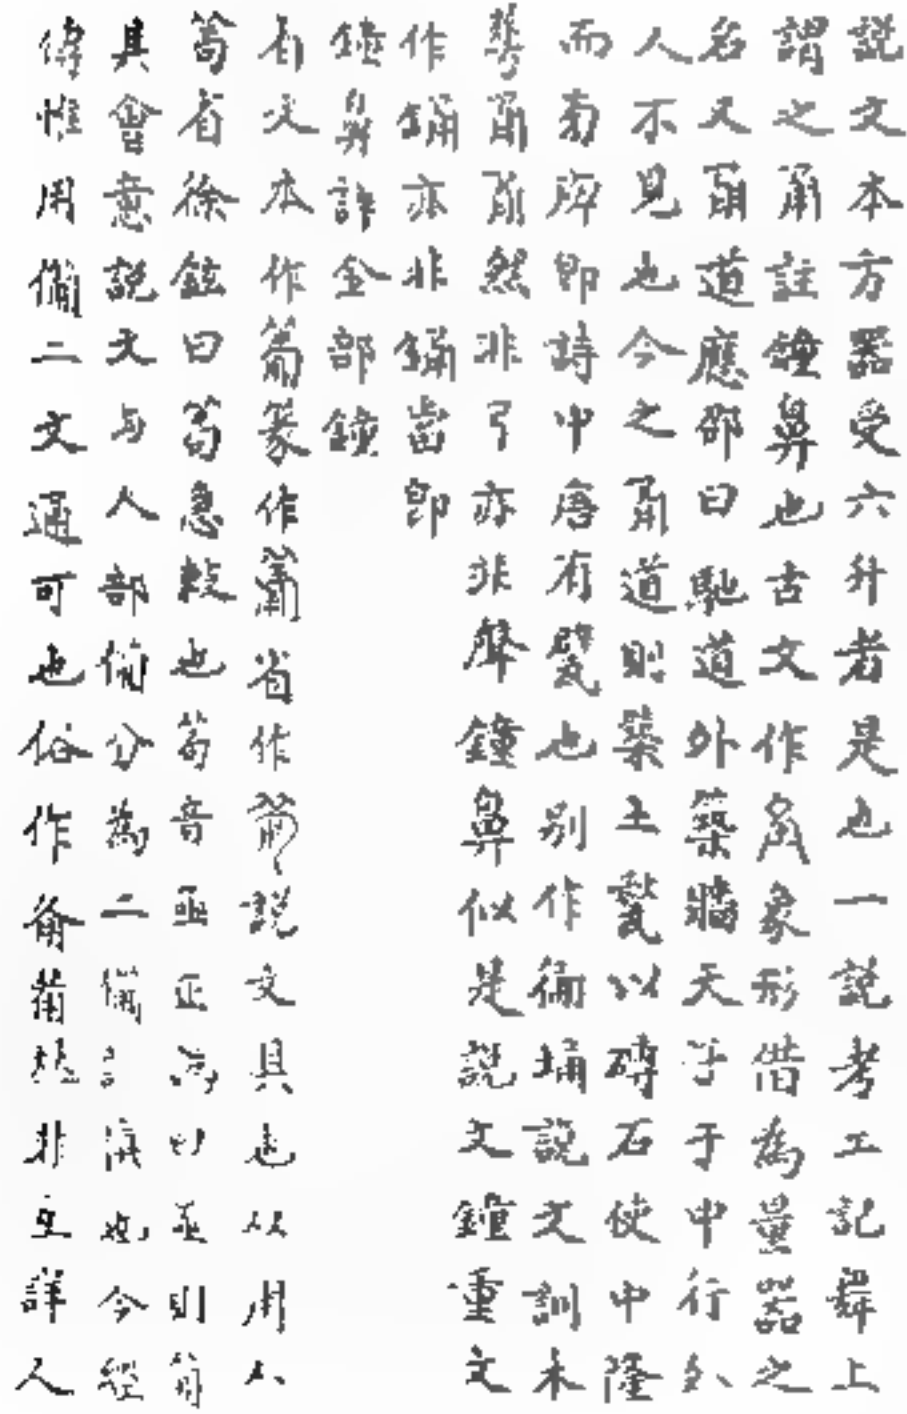 説文本方器受六升者是也一説考工記舞上
謂之甬註鐘鼻也古文作象形借為量器之
名又甬道應邵曰馳道外築牆天子于中行外
人不見也今之甬道則築土甃以磚石使中隆
而旁庳即詩中唐有甓也别作㣚埇説文訓木
甬甬然非弓亦非聲鐘鼻似是説文鐘重文
作銿亦非銿當即
鐘鼻詳金部鐘
𤰈文本作𤰈篆作省作説文具也从用从
茍省徐鉉曰茍急敕也茍音亟為以亟則茍
其會意説文与人部備分為二備訓慎也今經
傳惟用備二文通可也俗作俻並非互詳人